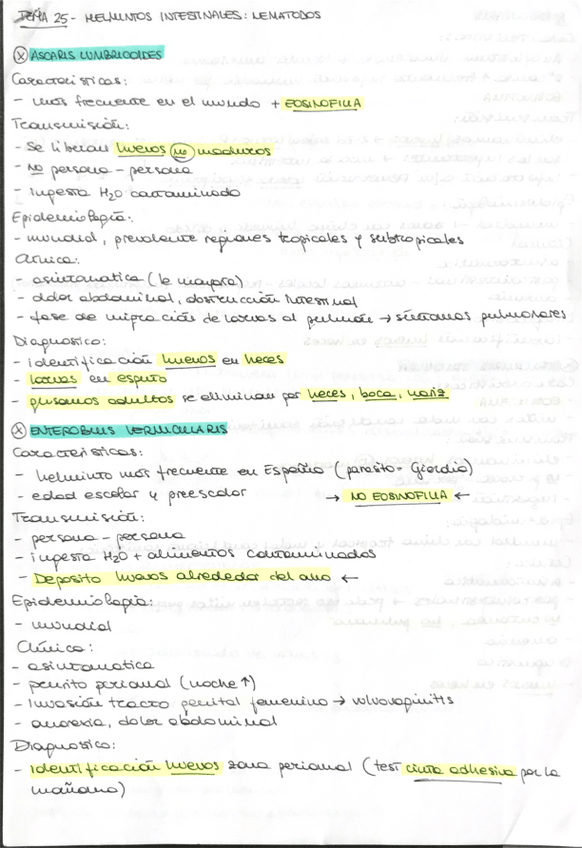 TEMA 25 - HELMINTOS INTESTINALES: NEMATODOS
ⓧ ASCARIS LUMBRICOIDES
Características:
- más frecuente en el mundo + EOSINOFILIA
Transmisión:
- Se liberan huevos no maduros
- No persona - persona
- ingesta H2O contaminada
Epidemiología:
- mundial, prevalente regiones tropicales y subtropicales
Clínica:
- asintomática (la mayoría)
- dolor abdominal, obstrucción intestinal
- fase de migración de larvas al pulmón → síntomas pulmonares
Diagnostico:
- identificación huevos en heces
- larvas en esputo
- gusanos adultos se eliminan por heces, boca, nariz
ⓧ ENTEROBIUS VERMICULARIS
Características:
- helminto más frecuente en España (parásito = Giardia)
- edad escolar y preescolar → NO EOSINOFILIA ←
Transmisión:
- persona - persona
- ingesta H2O + alimentos contaminados
- Deposita huevos alrededor del ano ←
Epidemiología:
- mundial
Clínica:
- asintomatica
- prurito perianal (noche ↑)
- Invasión tracto genital femenino → vulvovaginitis
- anorexia, dolor abdominal
Diagnostico:
- identificación huevos zona perianal (test cinta adhesiva por la
mañana)